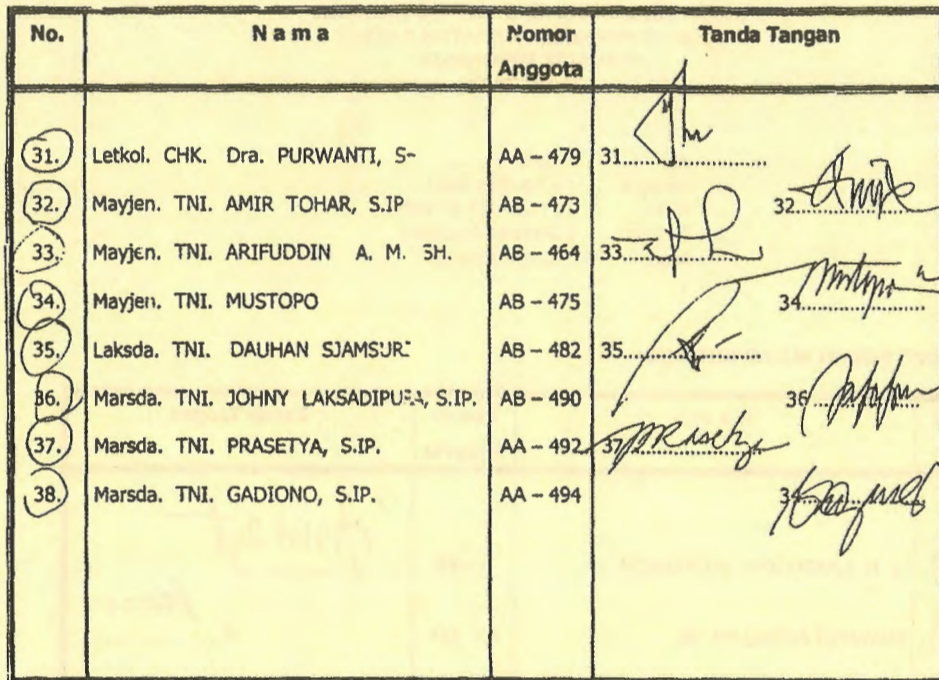 No. N a m a Nomor Anggota Tanda Tangan
31. Letkol. CHK. Dra. PURWANTI, S- AA – 479 31
32. Mayjen. TNI. AMIR TOHAR, S.IP AB – 473 32
33. Mayjen. TNI. ARIFUDDIN A. M. SH. AB – 464 33
34. Mayjen. TNI. MUSTOPO AB – 475 34
35. Laksda. TNI. DAUHAN AB – 482 35
36. Marsda. TNI. JOHNY LAKSADIPURA, S.IP. AB – 490 36
37. Marsda. TNI. PRASETYA, S.IP. AA – 492 37
38. Marsda. TNI. GADIONO, S.IP. AA – 494